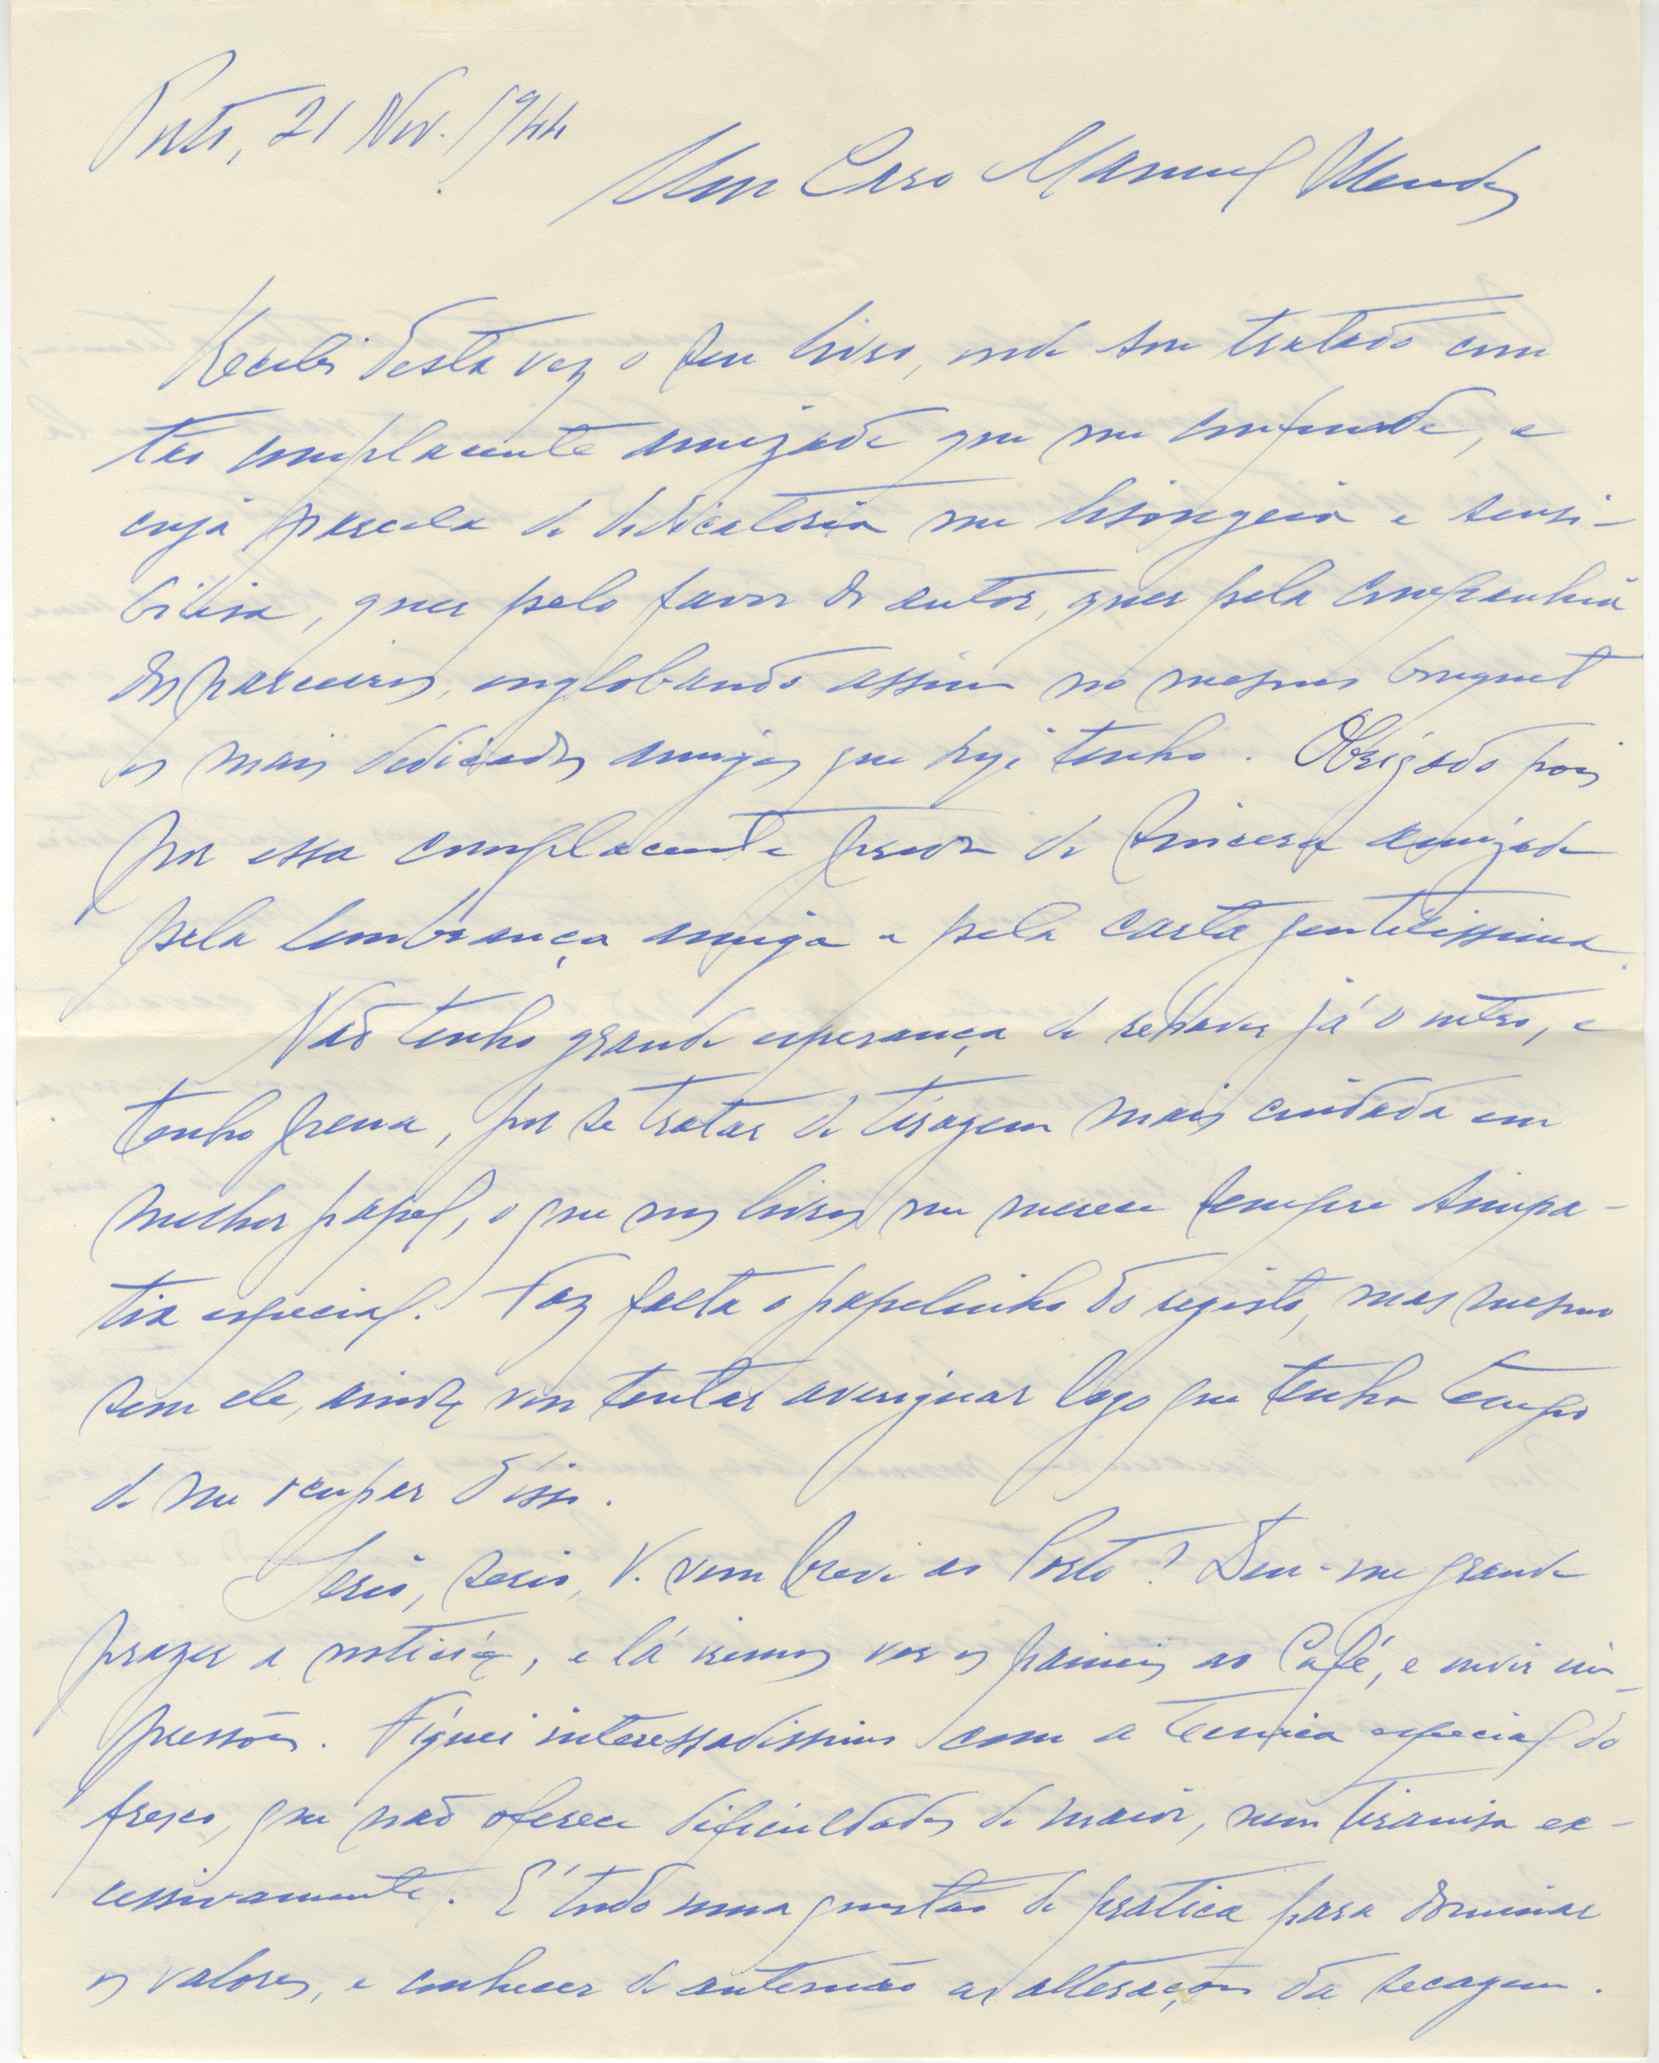 Porto, 21 Nov. 1944
Meu Caro Manuel Mendes
Recebi desta vez o seu livro, onde sou tratado com
tão complacente amizade que me confunde, e
cuja parcela de dedicatoria me lisongeia e sensi-
bilisa, quer pelo favor do autor, quer pela companhia
dos parceiros, englobando assim no mesmo bouquet
os mais dedicados amigos que hoje tenho. Obrigado pois
por essa complacente prova de sincera amizade
pela lembrança amiga e pela carta gentilissima.
Não tenho grande esperança de rehaver já o outro, e
tenho pena, por se tratar de tiragem mais cuidada em
melhor papel, o que nos livros me merece sempre simpa-
tia especial. Faz falta o papelinho do registo, mas mesmo
sem ele, ainda vou tentar averiguar logo que tenha tempo
de me ocupar d'isso.
Serio, serio, V. vem breve ao Porto? Deu-me grande
prazer a noticia, e lá iremos ver os paineis ao Café, e ouvir im-
pressões. Fiquei interessadissimo com a tecnica especial do
fresco, que não oferece dificuldades de maior, nem tiranisa ex-
cessivamente. É tudo uma questão de pratica para dominar
os valores, e conhecer de antemão as alterações da secagem.